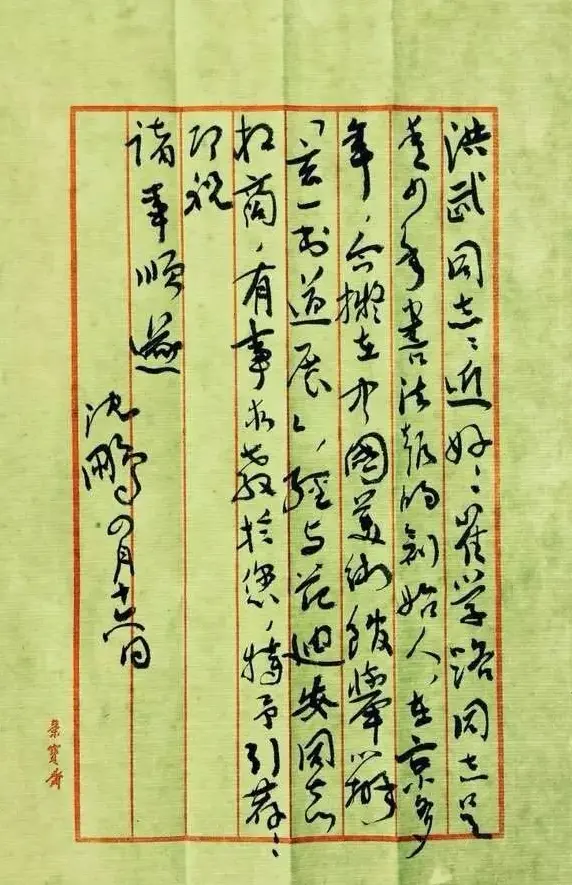 洪武同志：近好：崔学路同志是
青少年书法报的创始人，在京多
年，今擬在中国美術馆举办
「玄一书道展」，经与范迪安同志
相商，有事求教於您，特予引荐：
即祝
诸事顺遂
沈鹏 四月十六日
荣宝斋